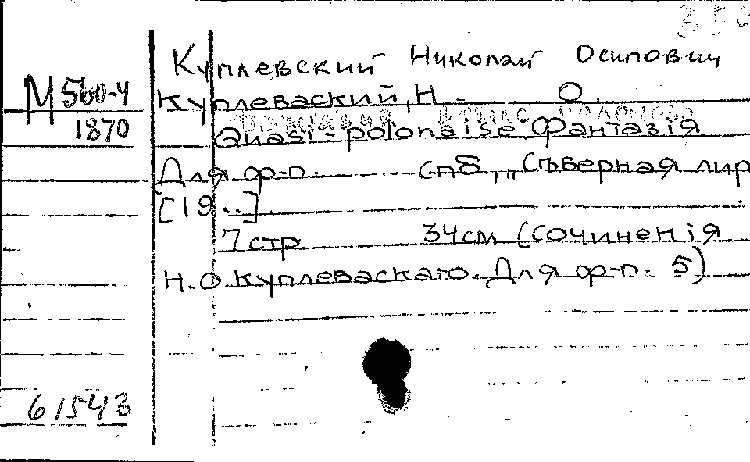 Куплевский Николай Осипович
М 560-4
Куплеваский, Н. О.
1870
Quasi-polonaise Фантазія
Для ф-п. СПб, „Съверная лир
[19..]
7 стр 34см (Сочиненія
Н.О.Куплеваскаго. Для ф-п. 5)
61543